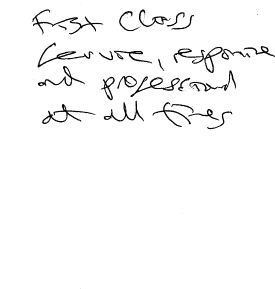 First Class
Service, responsive
and professional
at all times